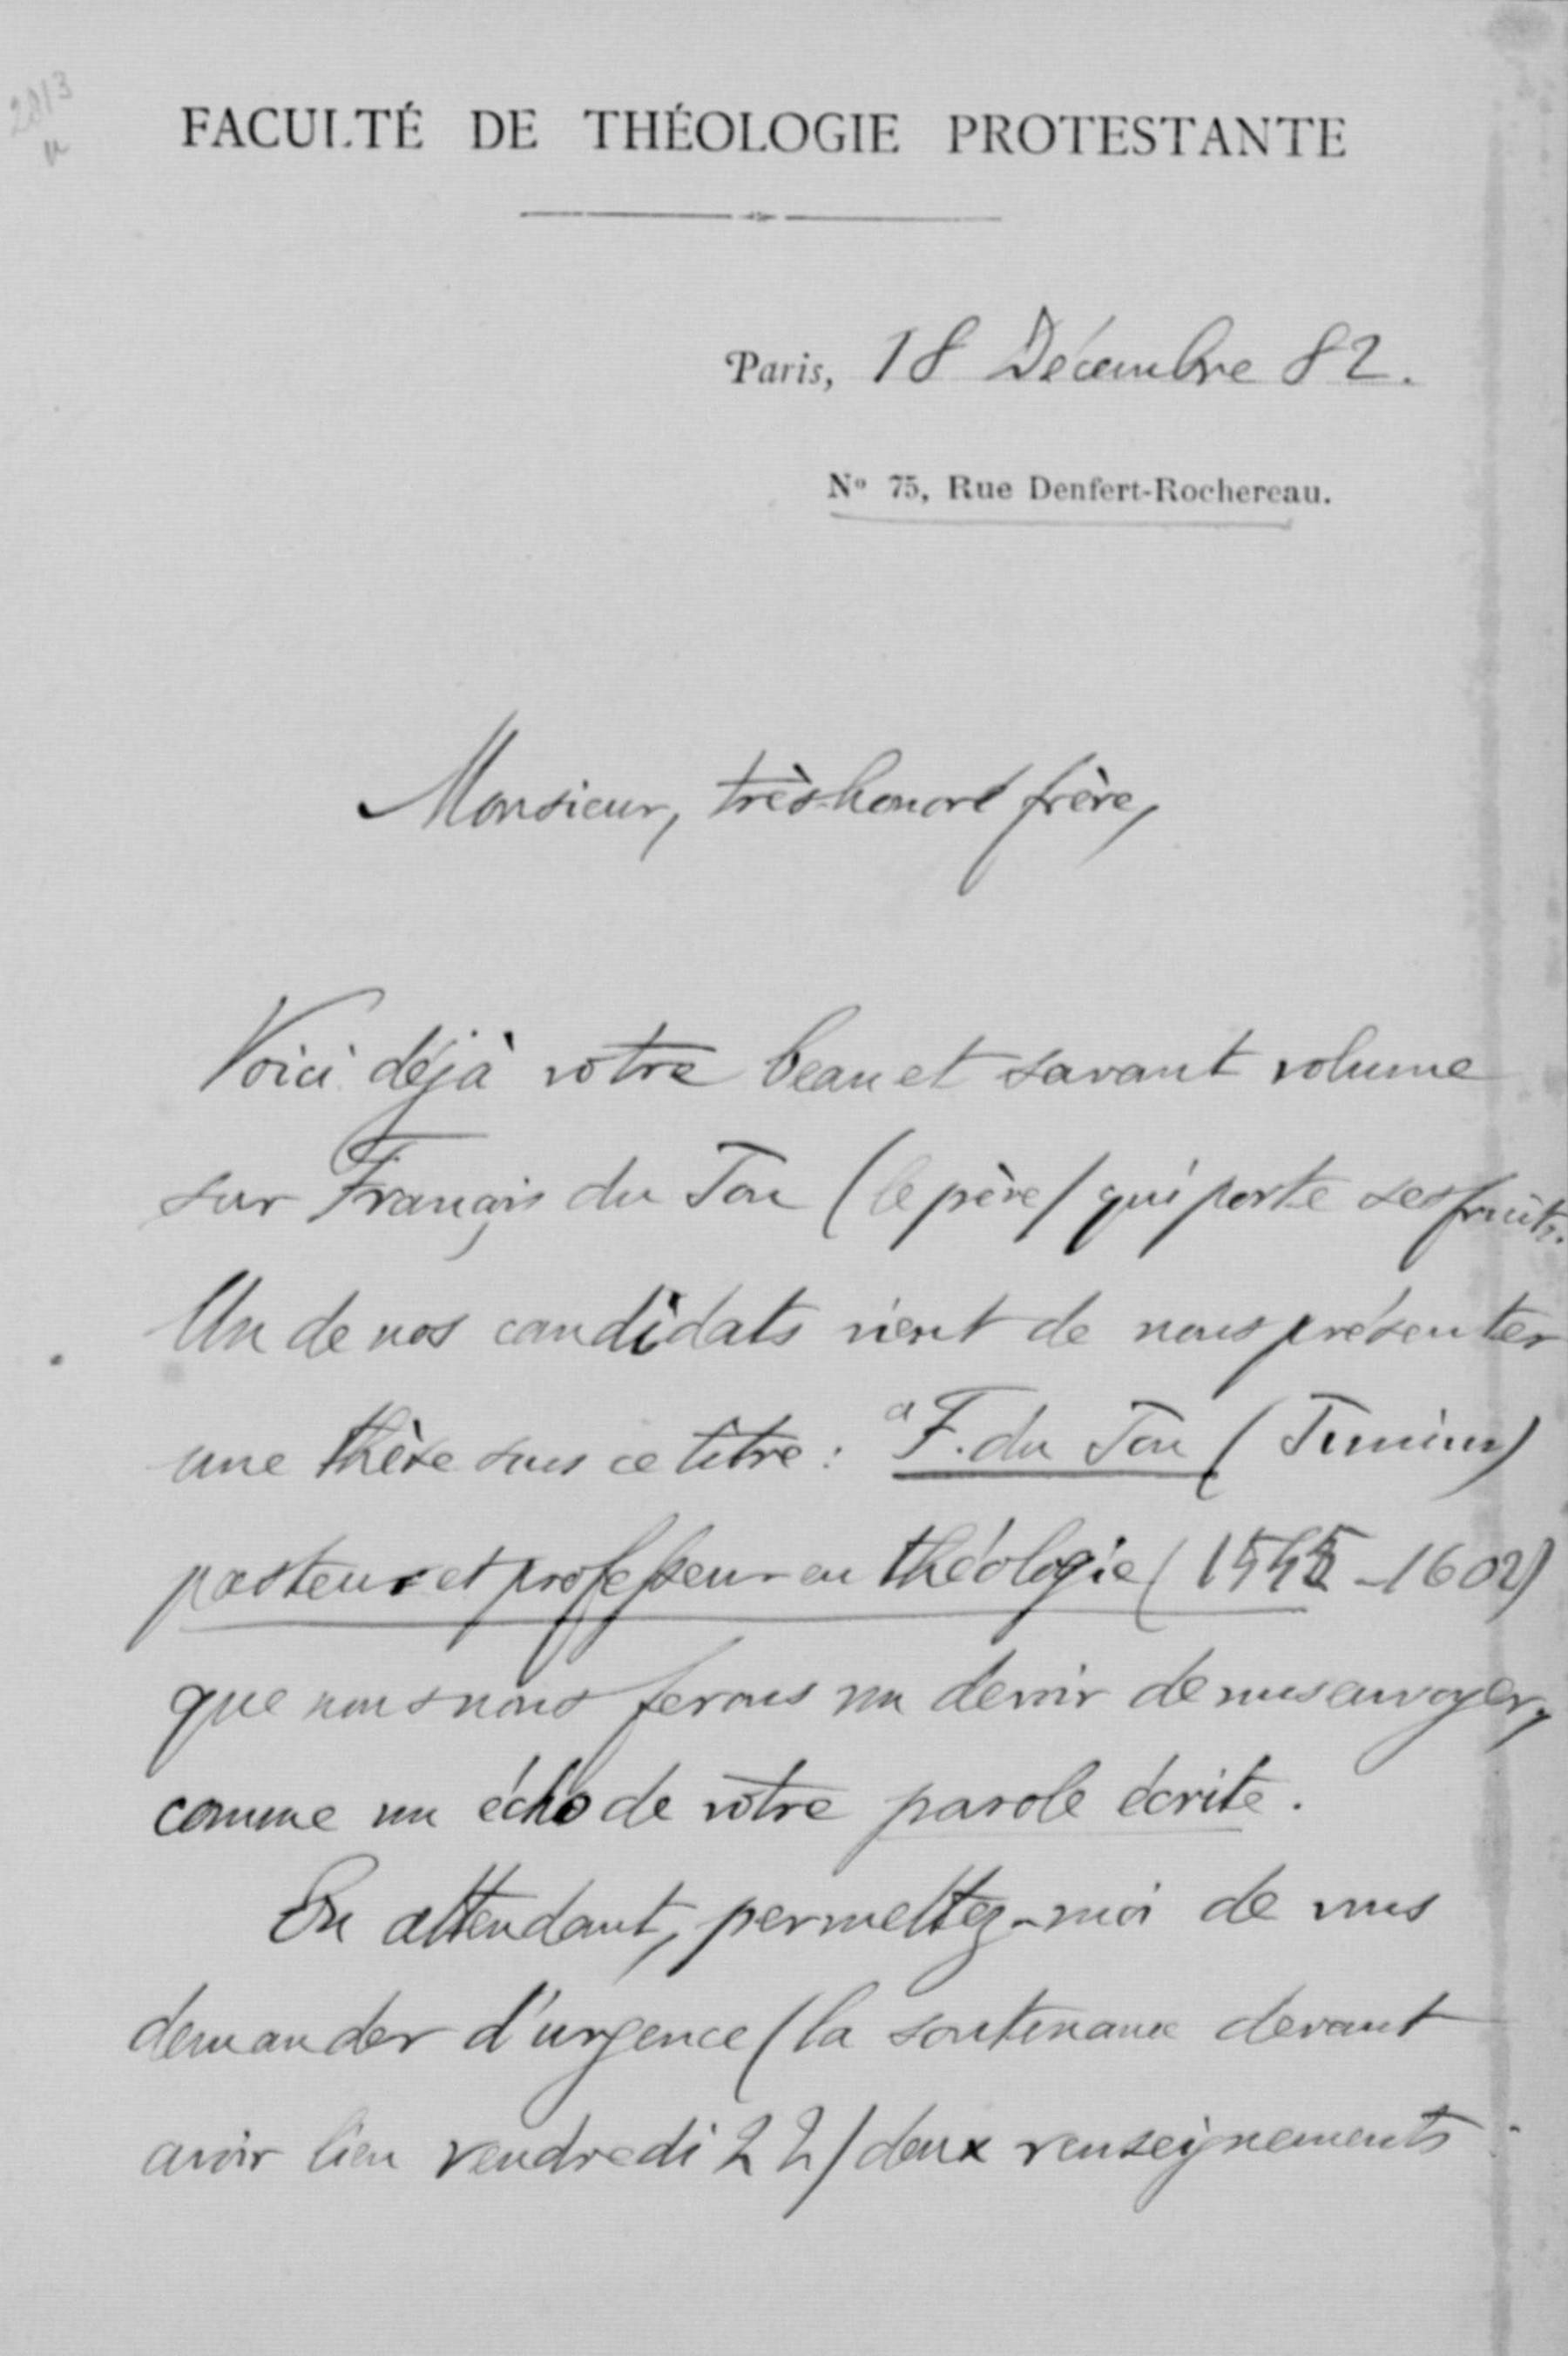 2013
FACULTÉ DE THÉOLOGIE PROTESTANTE
Paris, 18 Décembre 82.
No 75, Rue Denfert-Rochereau.
Monsieur, très-honoré frère,
Voici déjà votre beau et savant volume
sur François du Jon (le père) qui porte ses fruits.
Un de nos candidats vient de nous présenter
une thèse sous ce titre : " F. du Jon (Junius)
pasteur et professeur en théologie (1545-1602)
que nous nous ferons un devoir de vous envoyer,
comme un écho de votre parole écrite.
En attendant, permettez-moi de vous
demander d'urgence (la soutenance devant
avoir lieu vendredi 22) deux renseignements :